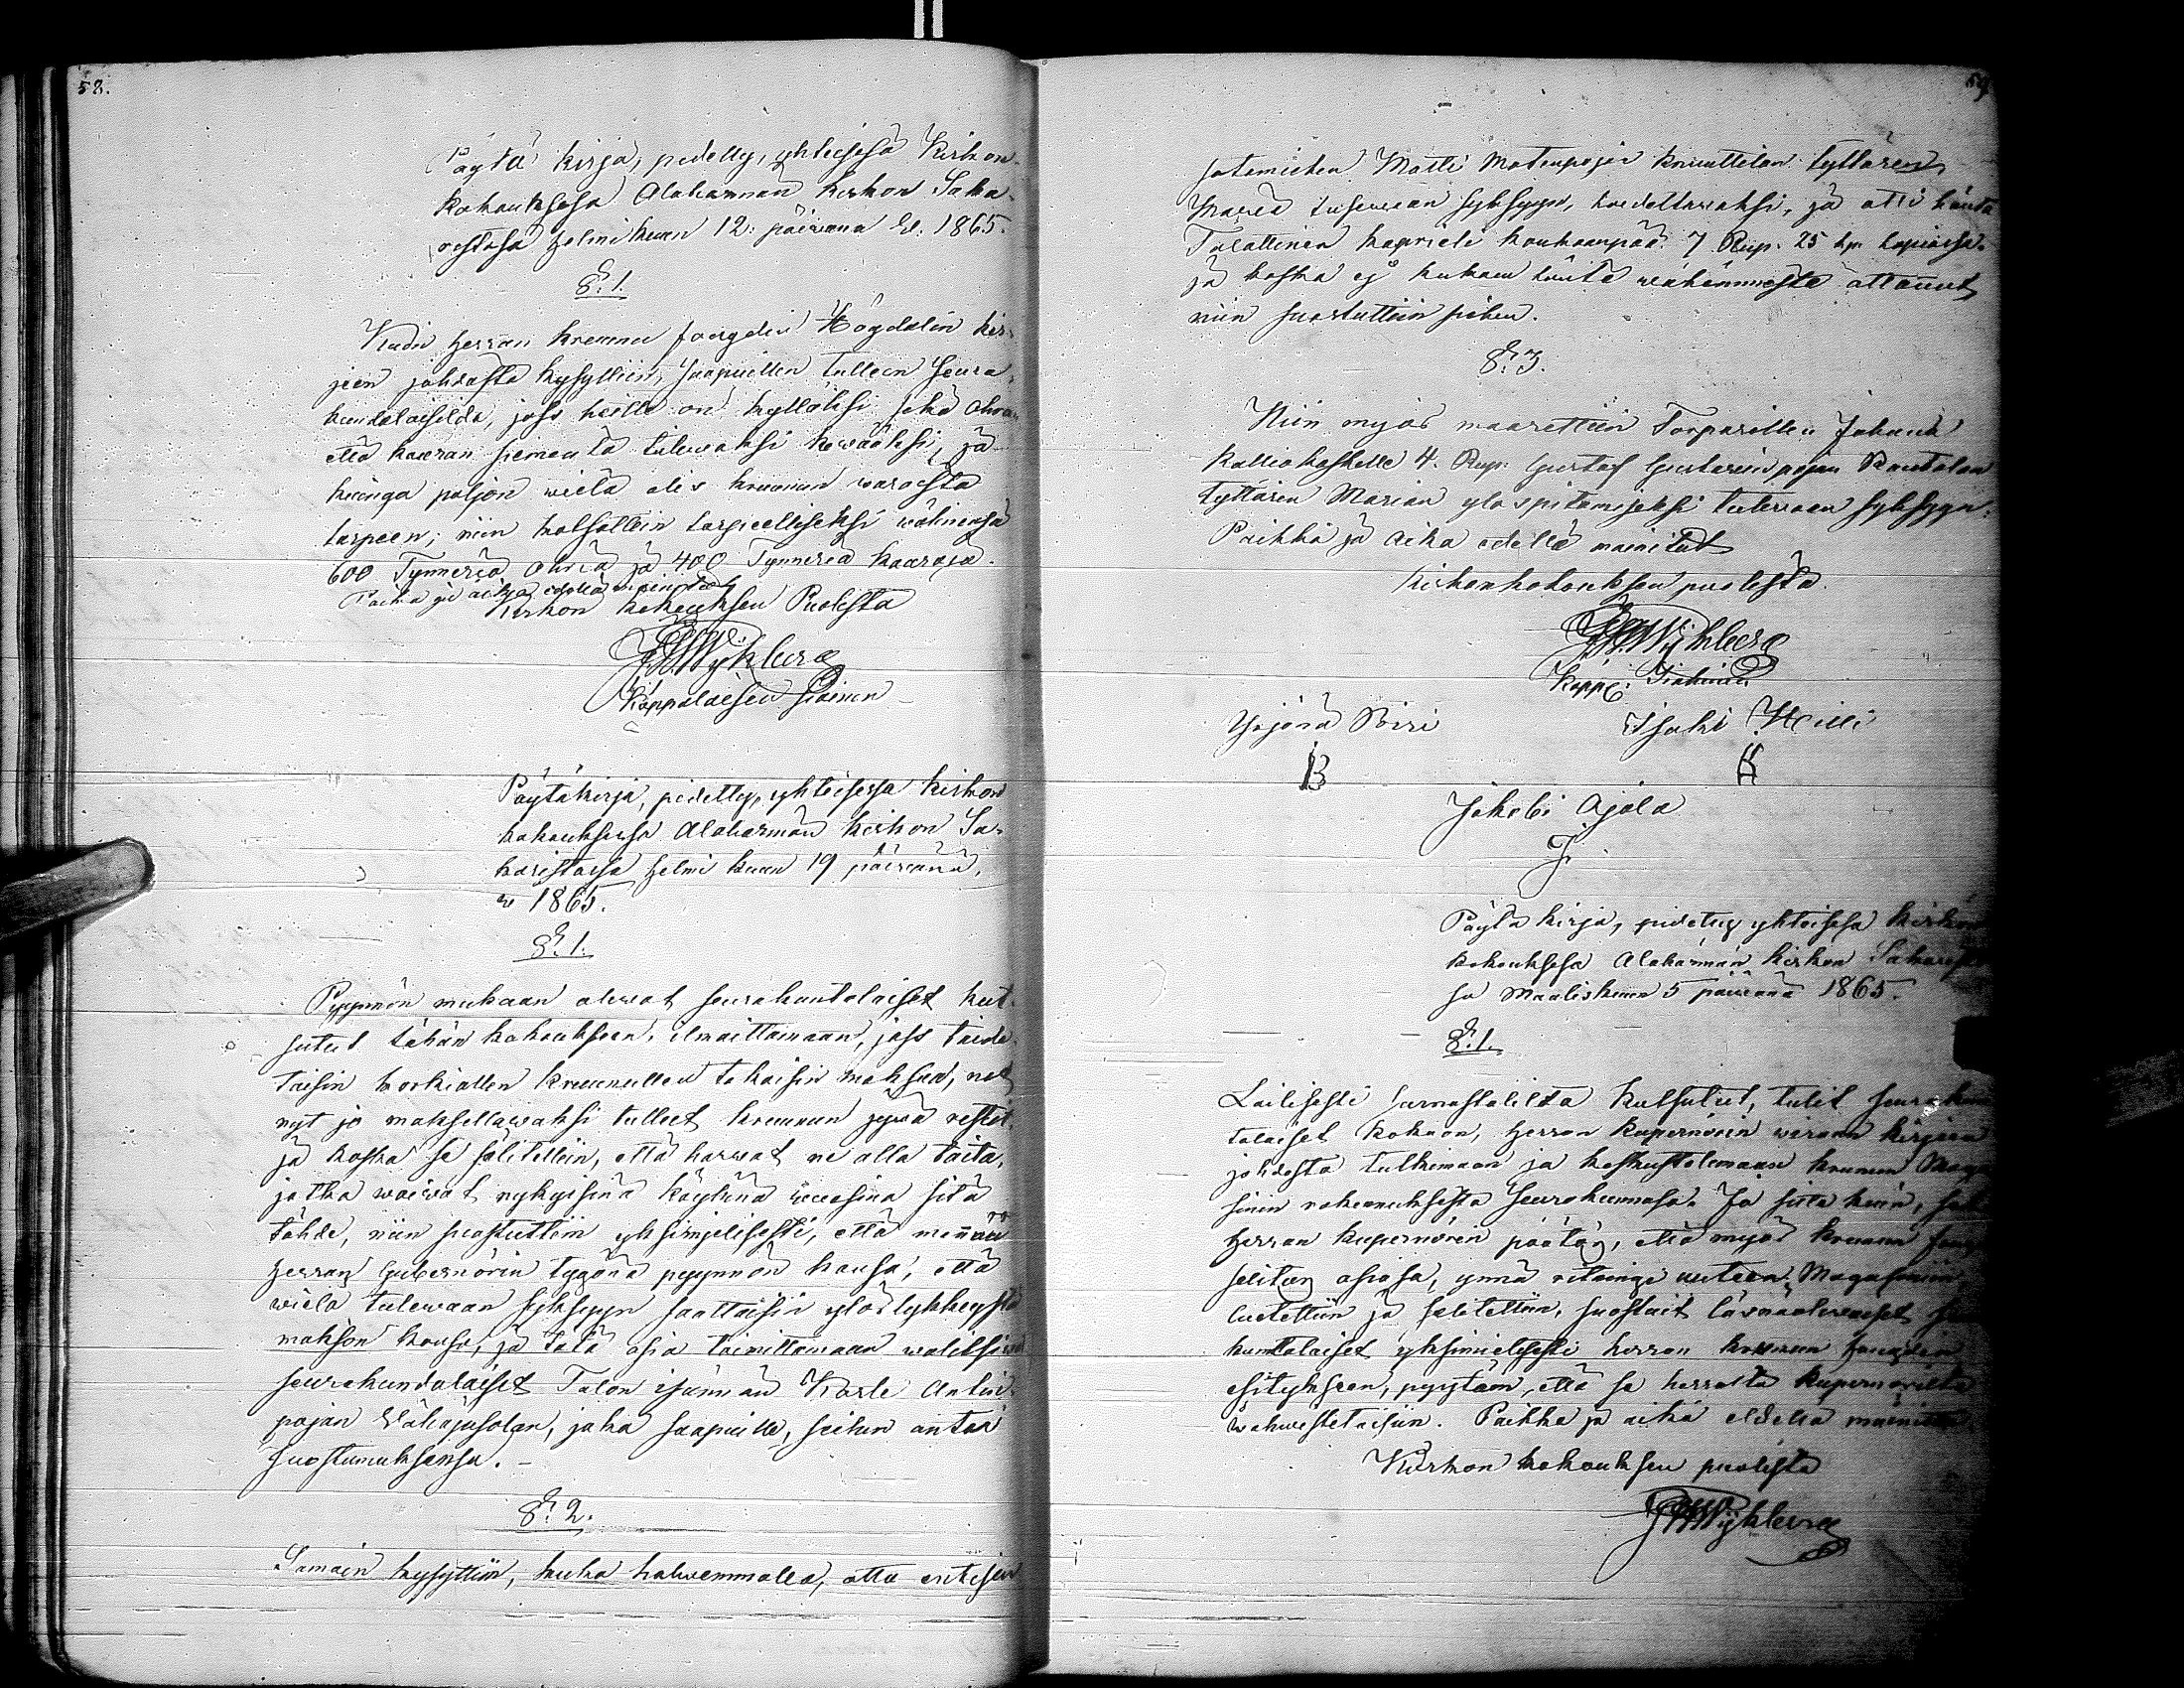 58.
Päytä kirja, pidetty, yhteisesä Kirkon
kokouksesa Alahärmän kirkon Saka-
restosa Helmi kuun 12. päiwänä w. 1865.
§. 1.
Kuin Herran kruunu fougdin Högdalin kir-
jeen johdosta kysyttiin, saapuillen tulleen Seura-
kundalaisilda, joss heille on kylläksi sekä ohran
että kauran siementä tulewaksi kewääksi, ja
kuinga paljon wielä olis kruunun waroista
tarpeen; niin katsottiin tarpeelliseksi wähinensä
600 Tynneriä ohria ja 400 Tynneriä kauroja.
Paikka ja aika edellä mainitut
Kirkon kokouksen Puolesta
J. W. Wykberg
Kappalaisen siainen
Päytäkirja, pidetty, yhteisessä kirkon
kokouksessa Alahärmän kirkon Sa-
karistossa Helmi kuun 19 päiwänä,
w 1865.
§. 1.
Pyynnön mukaan olewat seurakuntalaiset kut-
sutut tähän kokoukseen, ilmoittamaan, joss taide-
taisin korkiallen kruunullen takaisin maksaa, net
nyt jo maksettawaksi tulleet kruunun jywä restit.
ja koska se selitettiin, että harwat ne olla taita,
jotka woiwat nykyisinä köyhinä wuosina sitä
tähdä, niin suostuttiin yksimielisesti, että mennää
Herran Gubernörin tygönä pyynnön kansa, että
wielä tulewaan syksyyn saattaisiin ylös lykkäystä
makson kansa, ja tätä asia toimittamaan walitsiwat
seurakundalaiset Talon isännän Kaarle Antin
pojan Wähäjusolan, joka saapuille, siihen antoi
suostumuksensa.
§. 2.
Samain kysyttiin, kuka halwemmalla, otta entisen
59
sotamiehen Matti Matinpojan Knuuttilan tyttären
Maria tulewaan syksyyn, hoidettawaksi, ja otti häntä
Talollinen Kaprieli Kouhaanpää 7 Rup. 25 kp. hopiassa.
ja koska ej kukaan häntä wähemmästä ottanut,
niin suostuttiin siihen.
§. 3.
Niin myös määrättiin Torparillen Johank
Kalliokoskelle 4. Rup. Gustaf Gustawin pojan Rautalan
tyttären Marian ylöspitämiseksi tulewaan syksyyn.
Paikka ja Aika edellä mainitut
Kirkonkokouksen puolesta.
J. W. Wykberg
Kappl. Siainen
Yrjänä Piri
Isaki Hilli
Jakobi Ajola
Päytä kirja, pidetty yhteisesä kirkon
kokouksesa Alahärmän kirkon Sakaris-
sa Maaliskuun 5 päiwänä 1865.
§. 1.
Lailisesti saarnastolilta kutsutut, tulit seurakun
talaiset kokoon, Herran Kupernörin wiraan kirjeen
johdosta tutkimaan ja keskustelemaan kruunun Maga
sinin rakennuksesta Seurakunnasa. Ja siitä kuin,
Herran Kupernörin päätös, että myös kruunun
selitys asiasa, ynnä ritningi uuteen Magasiniin
luetettiin ja selitettiin, suostuit läsnäolewaiset
kuntalaiset yksimielisesti herran kruunun fougdin
esitykseen, pyytäin, että se herralta Kupernöriltä
wahwistetaisiin. Paikka ja aika edellä mainitut
Kirkon kokouksen puolesta
J. W. Wykberg